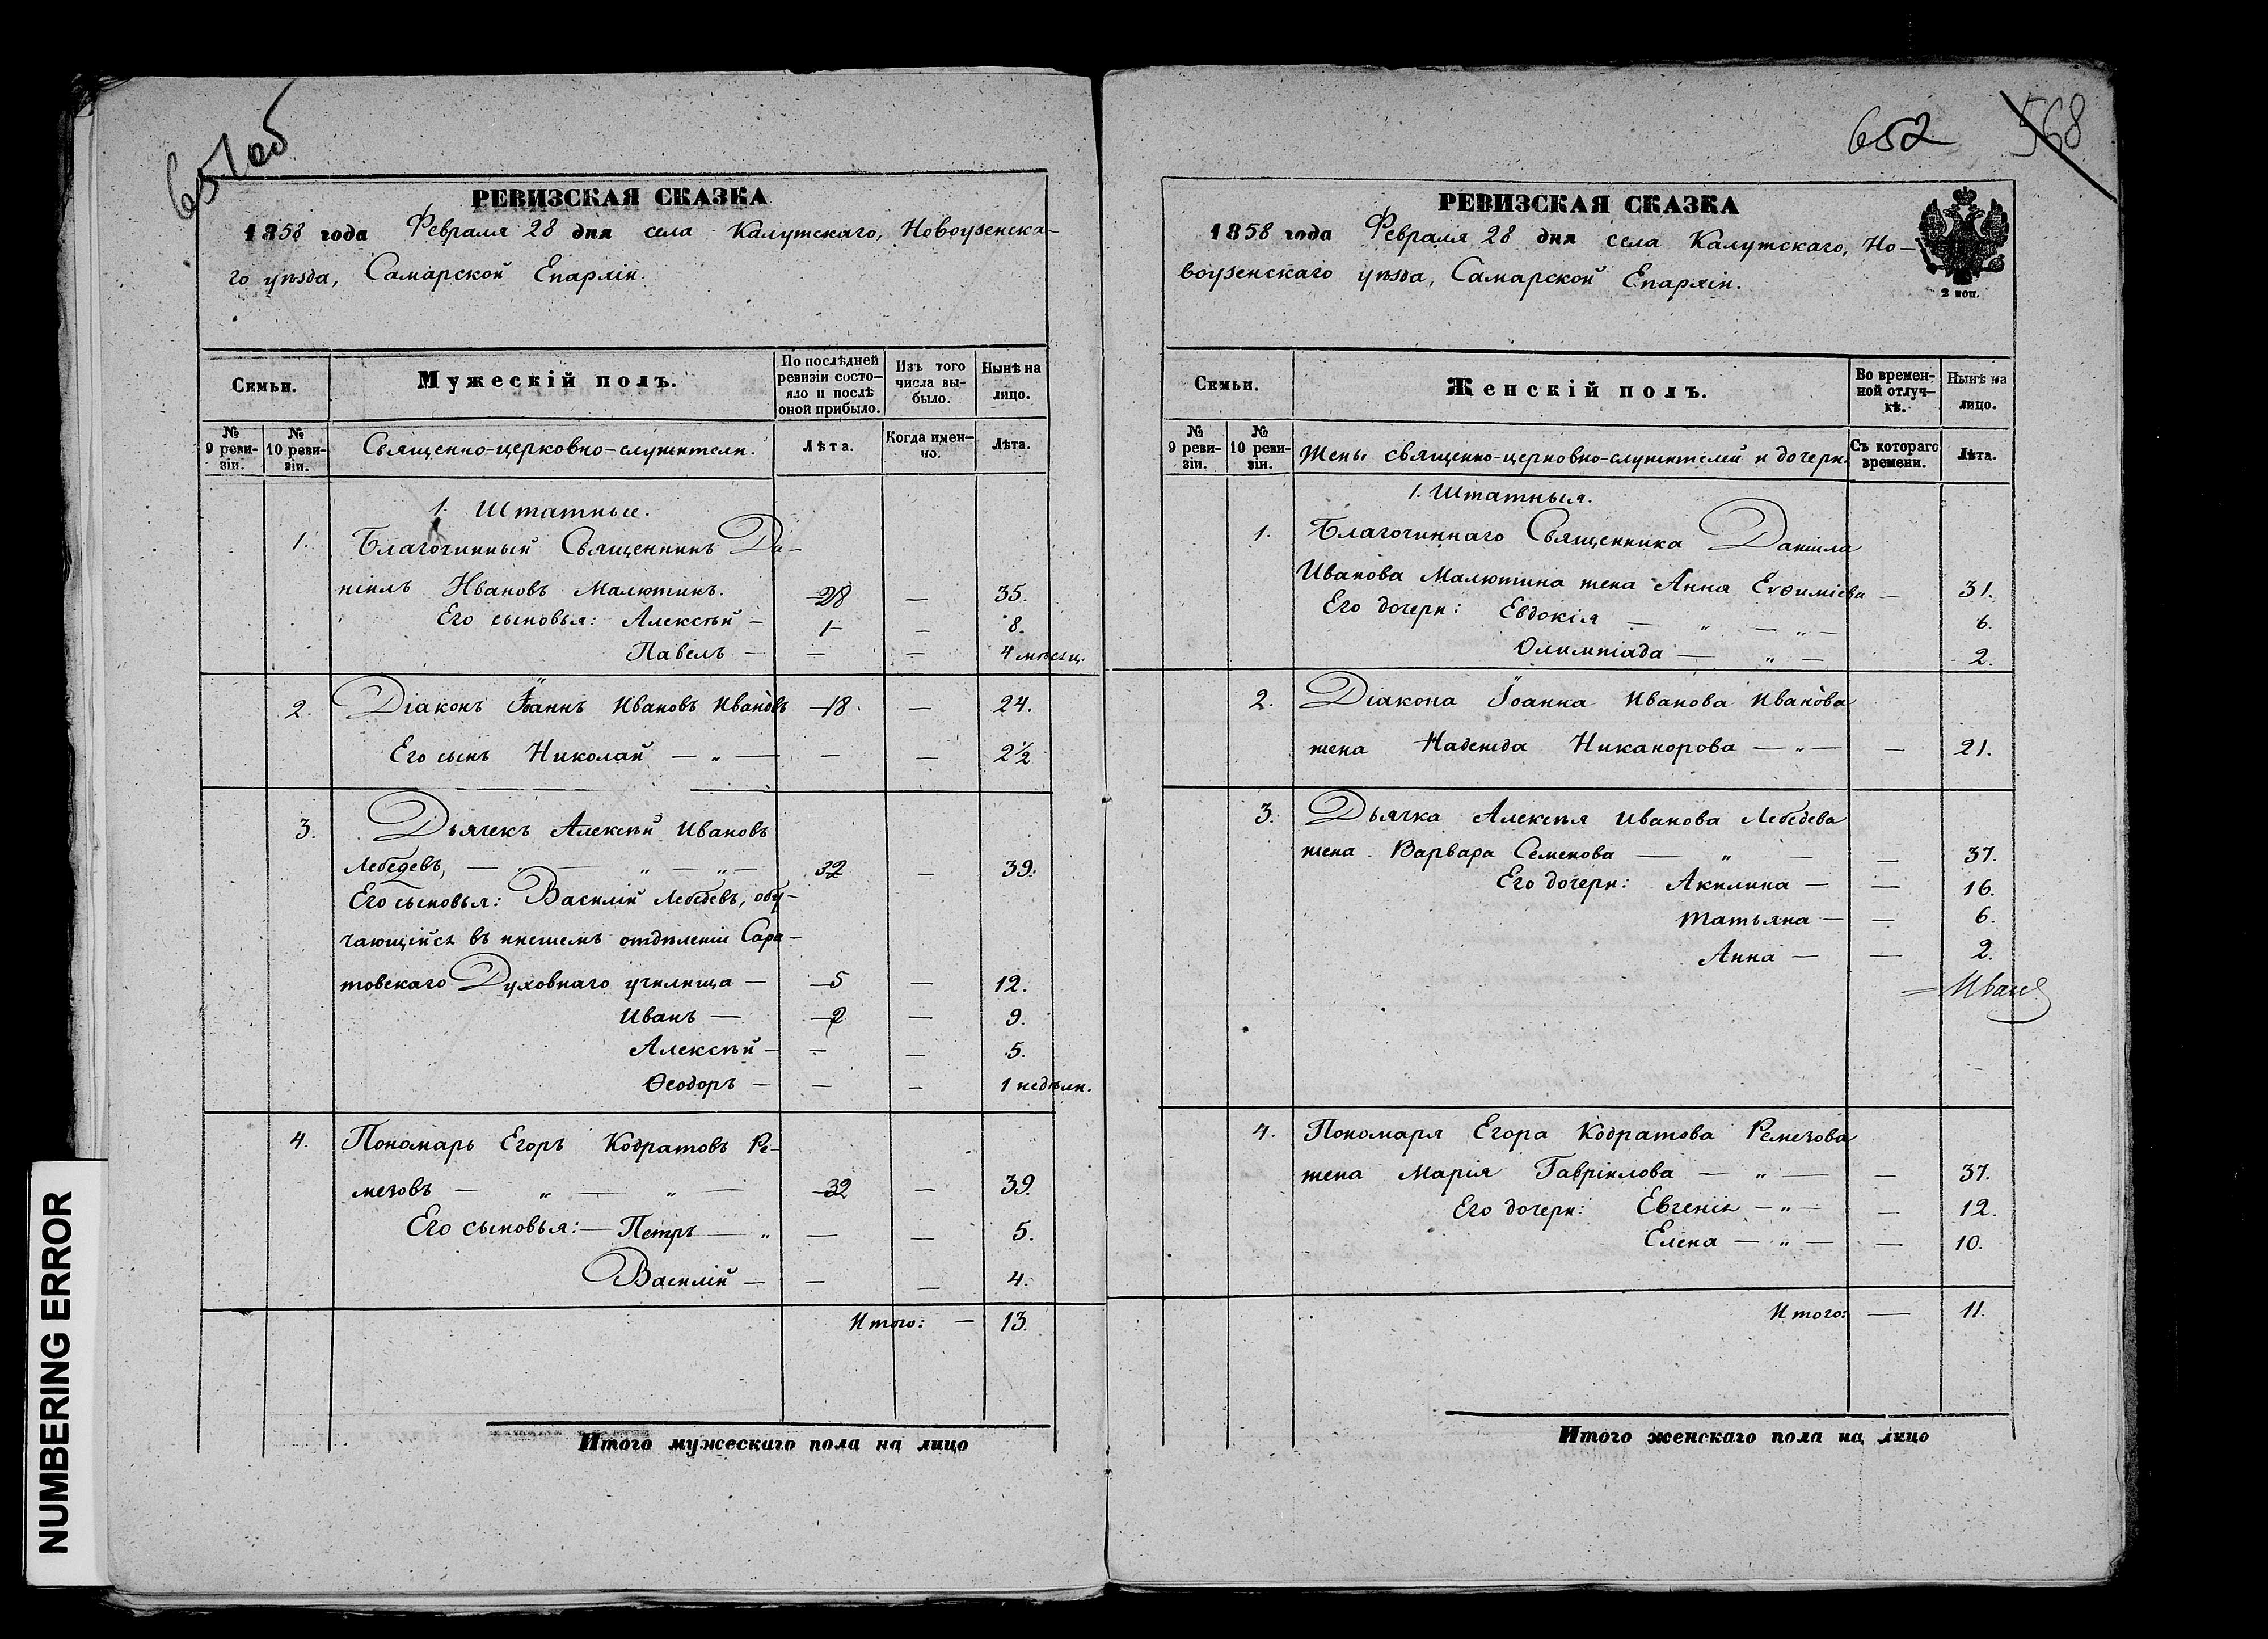 651об
РЕВИЗСКАЯ СКАЗКА
1858 года Февраля 28 дня села Калужскаго, Новоузенска-
го уѣзда, Самарской Епархіи.
Семьи.
Мужескій полъ.
По послѣдней ревизіи состо-яло и послѣ оной прибыло.
Изъ того числа вы-было.
Нынѣ на лицо.
№ 9 реви-зіи.
№ 10 реви-зіи.
Священно-церковно-служители.
Лѣта.
Когда имен-но.
Лѣта.
1. Штатные.
1. Благочинный Священникъ Да-
ніилъ Ивановъ Малютинъ. 28 — 35.
Его сыновья: Алексѣй — 1 — 8.
Павелъ — — — 4 мѣсяц.
2. Діаконъ Іоаннъ Ивановъ Ивановъ — 18. — 24.
Его сынъ Николай — „ — — — 2½
3. Дьячекъ Алексѣй Ивановъ
Лебедевъ, — „ — „ — „ — 32 — 39.
Его сыновья: Василій Лебедевъ, обу-
чающійся въ низшемъ отдѣленіи Сара-
товскаго Духовнаго училища — 5 — 12.
Иванъ — 2 — 9.
Алексѣй — — — 5.
Ѳеодоръ — — — 1 недѣли.
4. Пономарь Егоръ Кодратовъ Ре-
мезовъ — „ — „ — 32 — 39.
Его сыновья: — Петръ — „ — — 5.
Василій — — — 4.
Итого: — 13.
Итого мужескаго пола на лицо
652
568
РЕВИЗСКАЯ СКАЗКА
1858 года Февраля 28 дня села Калужскаго, Но-
воузенскаго уѣзда, Самарской Епархіи.
2 коп.
Семьи.
Женскій полъ.
Во времен-ной отлуч-кѣ.
Нынѣ на лицо.
№ 9 реви-зіи.
№ 10 реви-зіи.
Жены священно-церковно-служителей и дочери.
Съ котораго времени.
Лѣта.
1. Штатныя.
1. Благочиннаго Священника Даніила
Иванова Малютина жена Анна Евѳиміева — 31.
Его дочери: Евдокія — „ — „ — 6.
Олимпіада — „ — 2.
2. Діакона Іоанна Иванова Иванова
жена Надежда Никанорова — „ — — 21.
3. Дьячка Алексѣя Иванова Лебедева
жена Варвара Семенова — „ — — 37.
Его дочери: Акилина — — 16.
Татьяна — — 6.
Анна — — 2.
4. Пономаря Егора Кодратова Ремезова
жена Марія Гавріилова — „ — — 37.
Его дочери: Евгенія — „ — — 12.
Елена — „ — — 10.
Итого: — 11.
Итого женскаго пола на лицо
NUMBERING ERROR